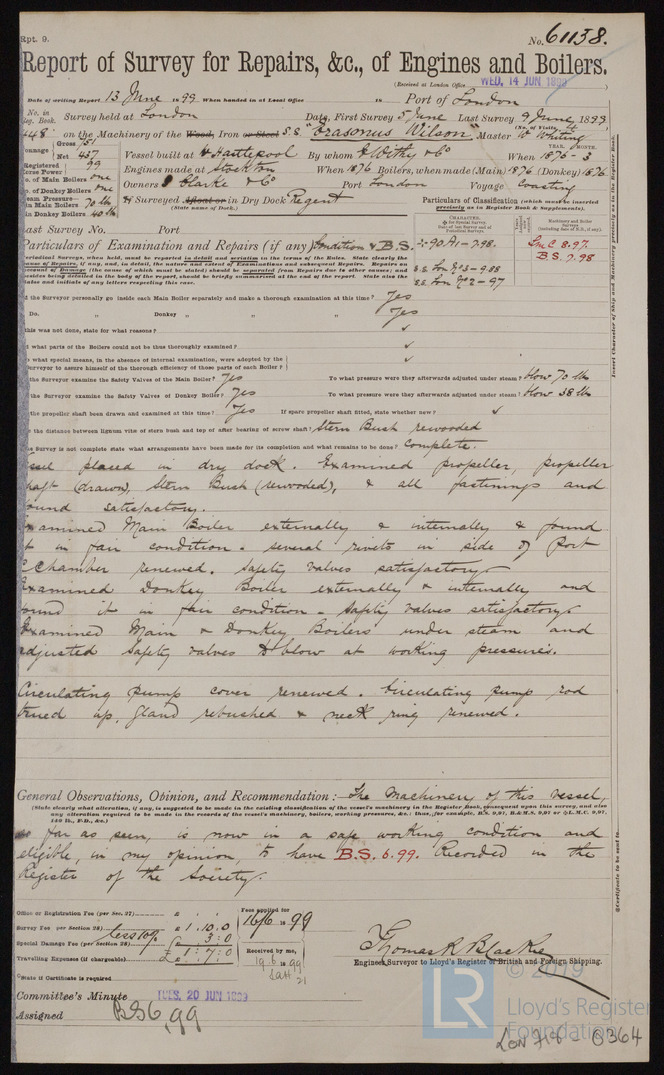 Rpt. 9.
No. 61138.
Report of Survey for Repairs, &c., of Engines and Boilers.
(Received at London Office WED. 14 JUN 1899
Date of writing Report 13 June 1899 When handed in at Local Office 18 Port of London
No. in Reg. Book. Survey held at London Date, First Survey 5 June Last Survey 9 June, 1899
(No. of Visits)
448 on the Machinery of the Wood, Iron or Steel S.S. "Erasmus Wilson" Master W Whiting
Gross 751
Net 437
Vessel built at W Hartlepool By whom E Withy & Co When 1876-3
YEAR. MONTH.
Registered Horse Power 99
Engines made at Stockton When 1876 Boilers, when made (Main) 1876 (Donkey) 1876
No. of Main Boilers one
No. of Donkey Boilers one
Owners Clarke & Co Port London Voyage Coasting
Steam Pressure—
in Main Boilers 70 lb
in Donkey Boilers 40 lb
If Surveyed Afloat or in Dry Dock Regent
(State name of Dock.)
Particulars of Classification (which must be inserted precisely as in Register Book & Supplements).
Last Survey No. Port
CHARACTER.
Machinery and Boiler Surveys
(including date of N.B., if any).
Particulars of Examination and Repairs (if any) Condition & B.S.
90A1-7.98.
LMC 8.97.
B.S. 7.98
S.S. Lon No 3-9.88
S.S. Lon No 2-97
Periodical Surveys, when held, must be reported in detail and seriatim in the terms of the Rules. State clearly the
cause of Repairs, if any, and, in detail, the nature and extent of Examinations and subsequent Repairs. Repairs on
account of Damage (the cause of which must be stated) should be separated from Repairs due to other causes; and
besides being detailed in the body of the report, should be briefly summarised at the end of the report. State also the
dates and initials of any letters respecting this case.
Did the Surveyor personally go inside each Main Boiler separately and make a thorough examination at this time? Yes
Do. " Donkey " " " Yes
If this was not done, state for what reasons? ✓
And what parts of the Boilers could not be thus thoroughly examined? ✓
what special means, in the absence of internal examination, were adopted by the
Surveyor to assure himself of the thorough efficiency of those parts of each Boiler? ✓
Did the Surveyor examine the Safety Valves of the Main Boiler? Yes To what pressure were they afterwards adjusted under steam? Blow 70 lb
Did the Surveyor examine the Safety Valves of Donkey Boiler? Yes To what pressure were they afterwards adjusted under steam? Blow 38 lb
Has the propeller shaft been drawn and examined at this time? Yes If spare propeller shaft fitted, state whether new? ✓
the distance between lignum vitæ of stern bush and top of after bearing of screw shaft? Stern Bush rewooded
Survey is not complete state what arrangements have been made for its completion and what remains to be done? Complete.
Vessel placed in dry dock. Examined propeller, propeller
shaft (drawn), Stern Bush (rewooded), & all fastenings and
found satisfactory.
Examined Main Boiler externally & internally & found
it in fair condition. Several rivets in side of Port
C Chamber renewed. Safety valves satisfactory.
Examined Donkey Boiler externally & internally and
found it in fair condition - Safety valves satisfactory
Examined Main & Donkey Boilers under steam and
adjusted Safety valves to blow at working pressures.
Circulating pump cover renewed. Circulating pump rod
trued up, gland rebushed & neck ring renewed.
General Observations, Opinion, and Recommendation:— The Machinery of this vessel,
(State clearly what alteration, if any, is suggested to be made in the existing classification of the vessel's machinery in the Register Book, consequent upon this survey, and also
any alteration required to be made in the records of the vessel's machinery, boilers, working pressures, &c.: thus, for example, B.S. 9,97, B.&M.S. 9,97 or L.M.C. 9,97,
180 lb., F.D., &c.)
so far as seen, is now in a safe working condition and
eligible, in my opinion, to have B.S. 6.99. Recorded in the
Register of the Society.
Office or Registration Fee (per Sec. 27) £ : :
Survey Fee (per Section 28) £ 1 : 10 : 0
less 10%
Special Damage Fee (per Section 28) £ : 3 : 0
Travelling Expenses (if chargeable) £ 1 : 7 : 0
Fees applied for
16/6 1899
Received by me,
19.6 1899
Thomas R. Blackie
Engineer Surveyor to Lloyd's Register of British and Foreign Shipping.
State if Certificate is required
Committee's Minute TUES. 20 JUN 1899
Assigned BS 6,99
Insert Character of Ship and Machinery precisely as in the Register Book
Certificate to be sent to
© 2019
LR
Lloyd's Register
Foundation
LON 718 - 0364